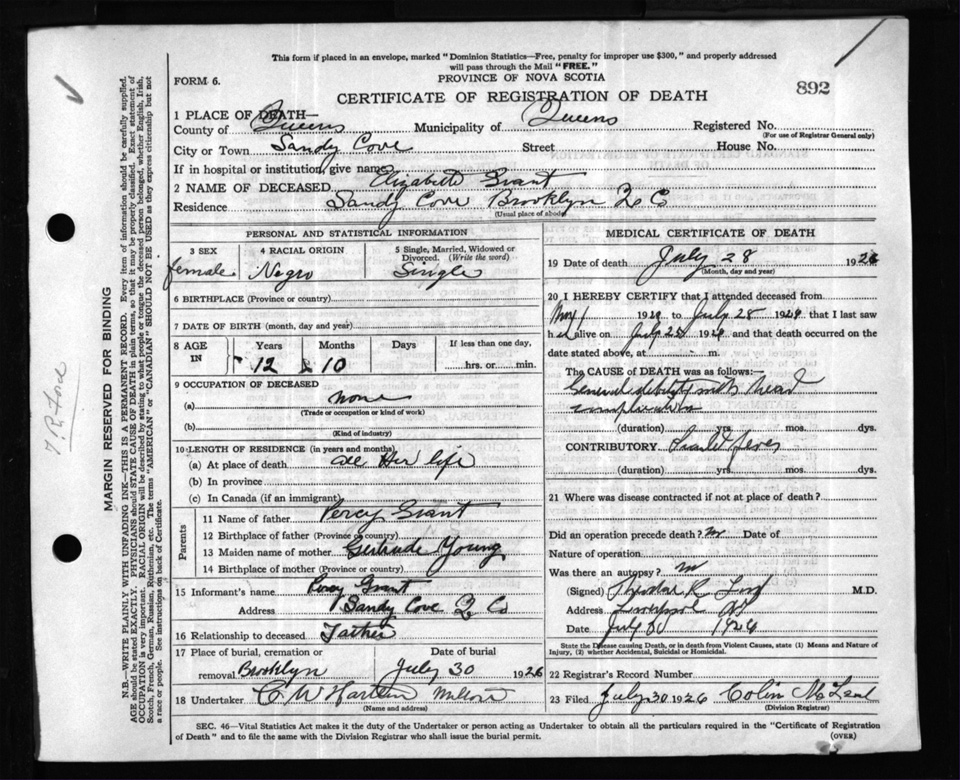 This form if placed in an envelope, marked "Dominion Statistics—Free, penalty for improper use $300," and properly addressed
will pass through the Mail "FREE."
FORM 6.
PROVINCE OF NOVA SCOTIA
892
CERTIFICATE OF REGISTRATION OF DEATH
1 PLACE OF DEATH—
County of Queens Municipality of Queens Registered No.
(For use of Registrar General only)
City or Town Sandy Cove Street House No.
If in hospital or institution, give name
2 NAME OF DECEASED Elizabeth Grant
Residence Sandy Cove Brooklyn Q Co
(Usual place of abode)
PERSONAL AND STATISTICAL INFORMATION
3 SEX 4 RACIAL ORIGIN 5 Single, Married, Widowed or Divorced. (Write the word)
female Negro Single
6 BIRTHPLACE (Province or country)
7 DATE OF BIRTH (month, day and year)
8 AGE IN Years Months Days If less than one day,
12 & 10 hrs. or min.
9 OCCUPATION OF DECEASED
(a) none
(Trade or occupation or kind of work)
(b)
(Kind of industry)
10 LENGTH OF RESIDENCE (in years and months)
(a) At place of death all Her life
(b) In province
(c) In Canada (if an immigrant)
Parents
11 Name of father Percy Grant
12 Birthplace of father (Province or country)
13 Maiden name of mother Gertrude Young
14 Birthplace of mother (Province or country)
15 Informant's name Percy Grant
Address Sandy Cove Q Co
16 Relationship to deceased Father
17 Place of burial, cremation or removal Date of burial
Brooklyn July 30 1926
18 Undertaker C W Milton
(Name and address)
MEDICAL CERTIFICATE OF DEATH
19 Date of death July 28 1926
(Month, day and year)
20 I HEREBY CERTIFY that I attended deceased from
192 to July 28 192 that I last saw
h alive on July 28 192 and that death occurred on
date stated above, at m.
The CAUSE of DEATH was as follows:
General debility with head
complication
(duration) yrs. mos. dys.
CONTRIBUTORY Scarlet fever
(duration) yrs. mos. dys.
21 Where was disease contracted if not at place of death?
Did an operation precede death? no Date of
Nature of operation
Was there an autopsy? no
(Signed) R Ford M.D.
Address Liverpool NS
Date July 30 1926
State the Disease causing Death, or in death from Violent Causes, state (1) Means and Nature of Injury, (2) whether Accidental, Suicidal or Homicidal.
22 Registrar's Record Number
23 Filed July 30 1926 Colin McLeod
(Division Registrar)
SEC. 46—Vital Statistics Act makes it the duty of the Undertaker or person acting as Undertaker to obtain all the particulars required in the "Certificate of Registration
of Death" and to file the same with the Division Registrar who shall issue the burial permit.
(OVER)
MARGIN RESERVED FOR BINDING
N.B.—WRITE PLAINLY WITH UNFADING INK—THIS IS A PERMANENT RECORD. Every item of information should be carefully supplied.
AGE should be stated EXACTLY. PHYSICIANS should STATE CAUSE OF DEATH in plain terms, so that it may be properly classified. Exact statement of
OCCUPATION is very important. RACIAL ORIGIN will be described by stating to what people or tongue the deceased person belonged, whether English, Irish,
Scotch, French, German, Russian, Ruthenian, etc. The terms "AMERICAN" or "CANADIAN" SHOULD NOT BE USED as they express citizenship but not
a race or people. See instructions on back of Certificate.
T. R. Ford